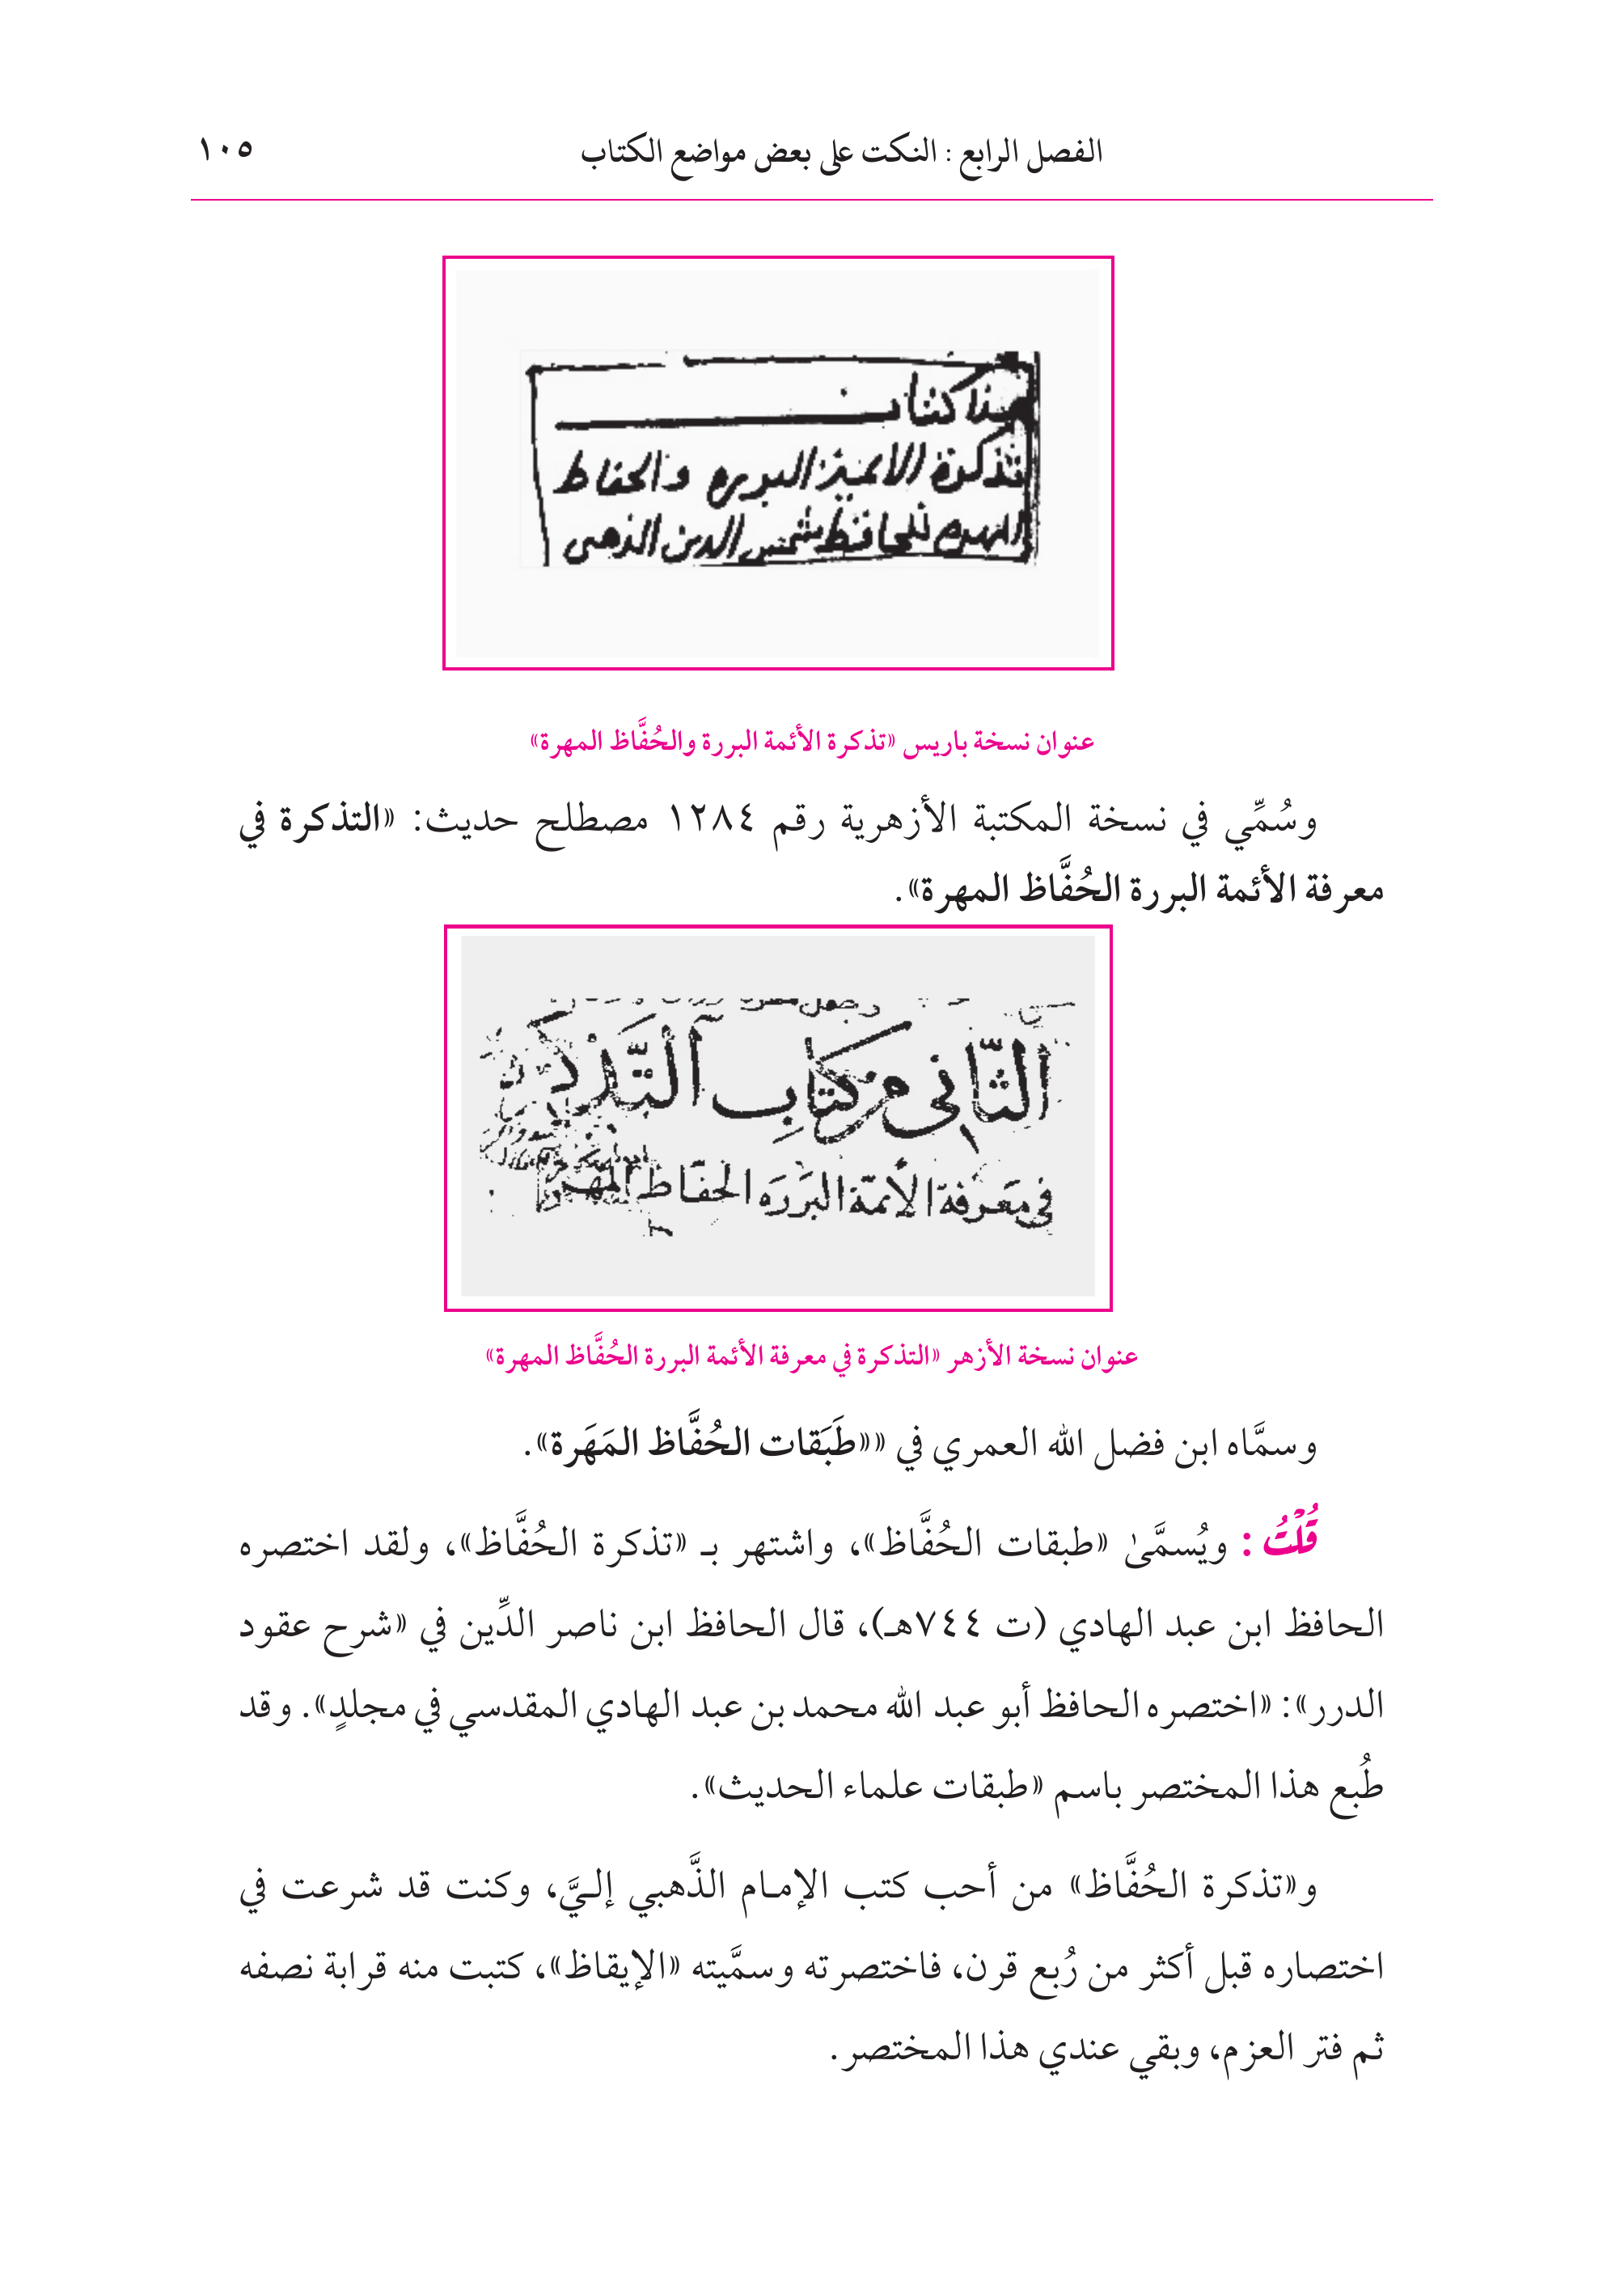 الفصل الرابع : النكت على بعض مواضع الكتاب ١٠٥
هذا كتاب
تذكرة الائمة البرره والحفاظ
المهره للحافظ شمس الدين الذهبى
عنوان نسخة باريس «تذكرة الأئمة البررة والحُفَّاظ المهرة»
وسُمِّي في نسخة المكتبة الأزهرية رقم ١٢٨٤ مصطلح حديث: «التذكرة في
معرفة الأئمة البررة الحُفَّاظ المهرة».
الثَّانى من كتابِ التَّذكرة
فى مَعَرفة الأئمّة البَررَه الحفّاظ المهَرة
عنوان نسخة الأزهر «التذكرة في معرفة الأئمة البررة الحُفَّاظ المهرة»
وسمَّاه ابن فضل الله العمري في ««طَبَقات الحُفَّاظ المَهَرة».
قُلْتُ : ويُسمَّىٰ «طبقات الحُفَّاظ»، واشتهر بـ «تذكرة الحُفَّاظ»، ولقد اختصره
الحافظ ابن عبد الهادي (ت ٧٤٤هـ)، قال الحافظ ابن ناصر الدِّين في «شرح عقود
الدرر»: «اختصره الحافظ أبو عبد الله محمد بن عبد الهادي المقدسي في مجلدٍ». وقد
طُبع هذا المختصر باسم «طبقات علماء الحديث».
و«تذكرة الحُفَّاظ» من أحب كتب الإمام الذَّهبي إليَّ، وكنت قد شرعت في
اختصاره قبل أكثر من رُبع قرن، فاختصرته وسمَّيته «الإيقاظ»، كتبت منه قرابة نصفه
ثم فتر العزم، وبقي عندي هذا المختصر.